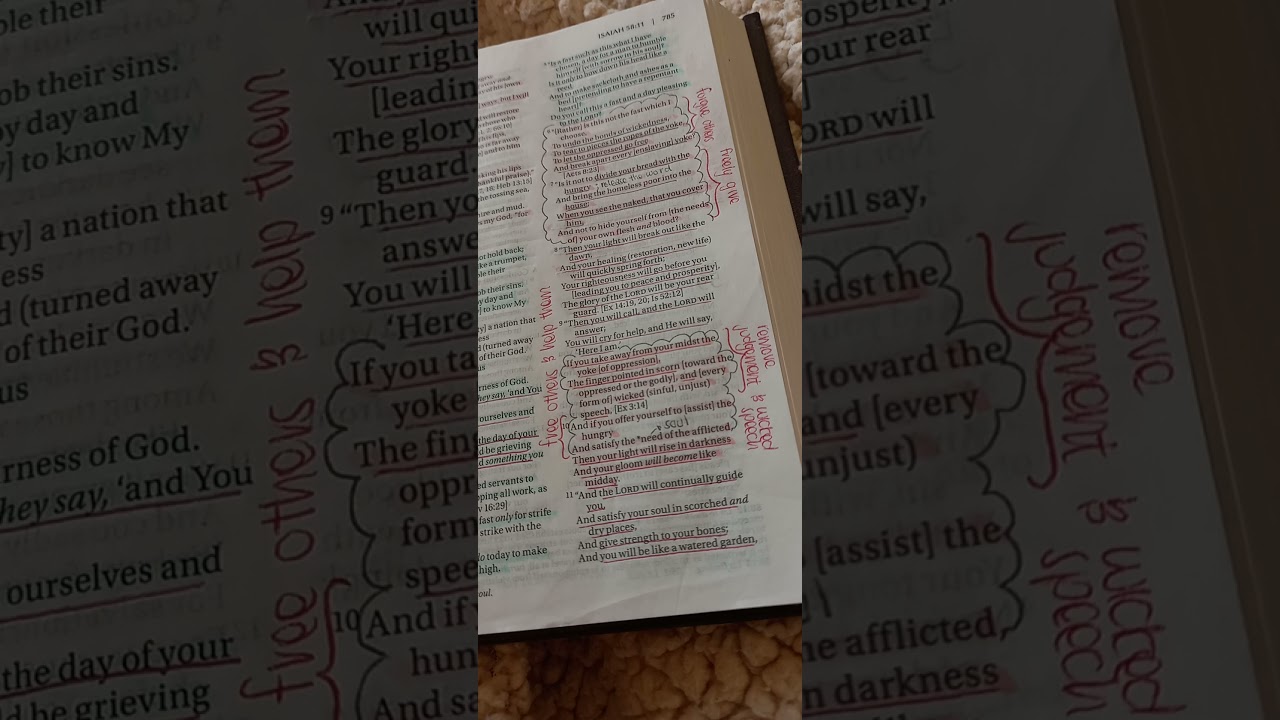 ISAIAH 58:11 | 785
5 "Is a fast such as this what I have
chosen, a day for a man to humble
himself [with sorrow in his soul]?
Is it only to bow down his head like a
reed
And to make sackcloth and ashes as a
bed [pretending to have a repentant
heart]?
Do you call this a fast and a day pleasing
to the LORD?
6 "[Rather] is this not the fast which I
choose,
To undo the bonds of wickedness,
To tear to pieces the ropes of the yoke,
To let the oppressed go free
And break apart every [enslaving] yoke?
[Acts 8:23]
7 "Is it not to divide your bread with the
hungry release the word
And bring the homeless poor into the
house;
When you see the naked, that you cover
him,
And not to hide yourself from [the needs
of] your own flesh and blood?
8 "Then your light will break out like the
dawn,
And your healing (restoration, new life)
will quickly spring forth;
Your righteousness will go before you
[leading you to peace and prosperity],
The glory of the LORD will be your rear
guard. [Ex 14:19, 20; Is 52:12]
9 "Then you will call, and the LORD will
answer;
You will cry for help, and He will say,
'Here I am.'
If you take away from your midst the
yoke [of oppression],
The finger pointed in scorn [toward the
oppressed or the godly], and [every
form of] wicked (sinful, unjust)
speech, [Ex 3:14]
10 And if you offer yourself to [assist] the
hungry
soul
And satisfy the *need of the afflicted,
Then your light will rise in darkness
And your gloom will become like
midday.
11 "And the LORD will continually guide
you,
And satisfy your soul in scorched and
dry places,
And give strength to your bones;
And you will be like a watered garden,
free others & help them
freely give
remove
judgement & wicked
speech
king his lips
thankful praise]."
Heb 13:15]
the tossing sea,
ure and mud.
s my God, "for
ot hold back;
ke a trumpet,
ole their
ob their sins.
y day and
] to know My
ty] a nation that
ess
d (turned away
of their God.
us
rness of God.
hey say, 'and You
ourselves and
the day of your
d be grieving
d something you
ed servants to
ping all work, as
v 16:29]
fast only for strife
strike with the
do today to make
high.
oul.